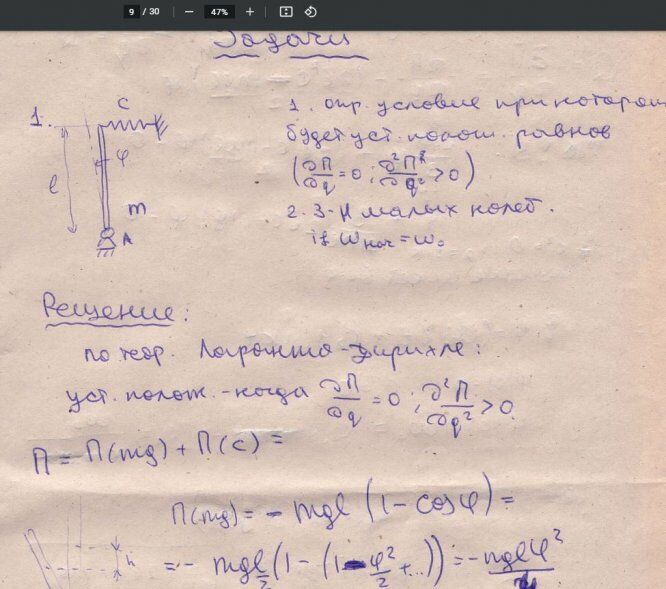 9 / 30 − 47% +
Задачи
1.
C
φ
l
m
A
1. опр. условие при котором
будет уст. полож. равнов
(∂П/∂q = 0; ∂²П/∂q² > 0)
2. З-н малых колеб.
if ω нач = ω₀
Решение:
по теор. Лагранжа-Дирихле:
уст. полож. - когда ∂П/∂q = 0; ∂²П/∂q² > 0
П = П(mg) + П(c) =
П(mg) = - mgl (1 - cosφ) =
h
= - mgl/2 (1 - (1 - φ²/2 + ...)) = - mglφ²